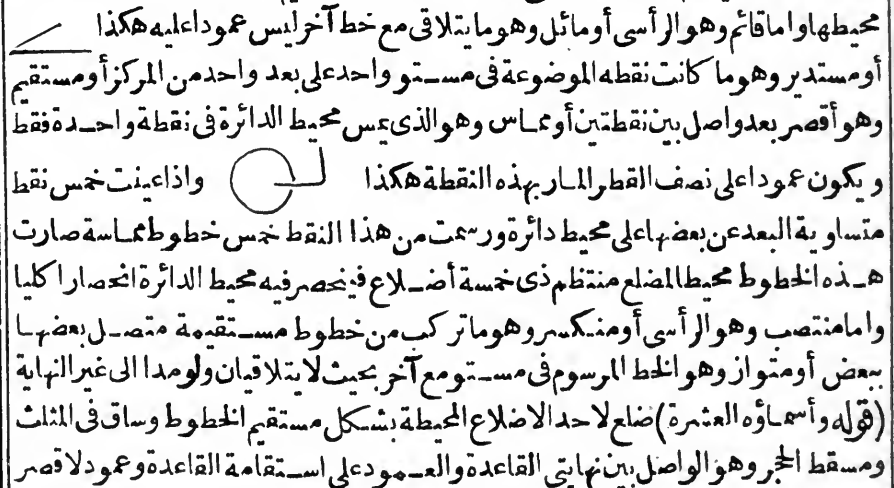 محيطها واما قائم وهو الرأسى أو مائل وهو ما يتلاقى مع خط آخر ليس عمودا عليه هكذا
أو مستدير وهو ما كانت نقطه الموضوعة فى مستو واحد على بعد واحد من المركز أو مستقيم
وهو أقصر بعد واصل بين نقطتين أو مماس وهو الذى يمس محيط الدائرة فى نقطة واحدة فقط
ويكون عمودا على نصف القطر المار بهذه النقطة هكذا واذا عينت خمس نقط
متساوية البعد عن بعضها على محيط دائرة ورسمت من هذا النقط خمس خطوط مماسة صارت
هذه الخطوط محيطا لمضلع منتظم ذى خمسة أضلاع فينحصر فيه محيط الدائرة انحصارا كليا
واما منتصب وهو الرأسى أو منكسر وهو ما تركب من خطوط مستقيمة متصل بعضها
ببعض أو متواز وهو الخط المرسوم فى مستو مع آخر بحيث لا يتلاقيان ولو مدا الى غير النهاية
(قوله وأسماؤه العشرة) ضلع لاحد الاضلاع المحيطة بشكل مستقيم الخطوط وساق فى المثلث
ومسقط الحجر وهو الواصل بين نهايتى القاعدة والعمود على استقامة القاعدة وعمود لا قصر